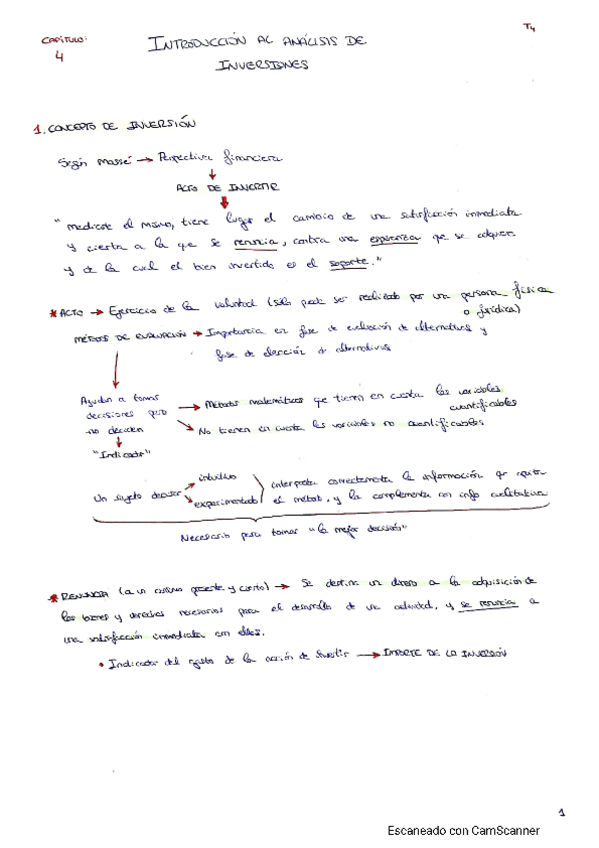 CAPÍTULO:
4
T4
INTRODUCCIÓN AL ANÁLISIS DE
INVERSIONES
1. CONCEPTO DE INVERSIÓN
Según Massé → Perspectiva financiera
↓
ACTO DE INVERTIR
↓
"mediante el mismo, tiene lugar el cambio de una satisfacción inmediata
y cierta a la que se renuncia, contra una esperanza que se adquiere
y de la cual el bien invertido es el soporte."
* ACTO → Ejercicio de la voluntad (sólo puede ser realizado por una persona física
o jurídica)
MÉTODOS DE EVALUACIÓN → Importancia en fase de evaluación de alternativas y
fase de elección de alternativas
Ayudan a tomar
decisiones pero
no deciden
→ Métodos matemáticos que tienen en cuenta las variables
cuantificables
→ No tienen en cuenta las variables no cuantificables
↓
"Indicador"
Un sujeto decisor
intuitivo
experimentado
interpreta correctamente la información que aporta
el método, y la complementa con info cualitativa
Necesario para tomar "la mejor decisión"
* RENUNCIA (a un consumo presente y cierto) → Se destina un dinero a la adquisición de
los bienes y derechos necesarios para el desarrollo de una actividad, y se renuncia a
una satisfacción inmediata con ellos.
• Indicador del de la acción de invertir → IMPORTE DE LA INVERSIÓN
1
Escaneado con CamScanner